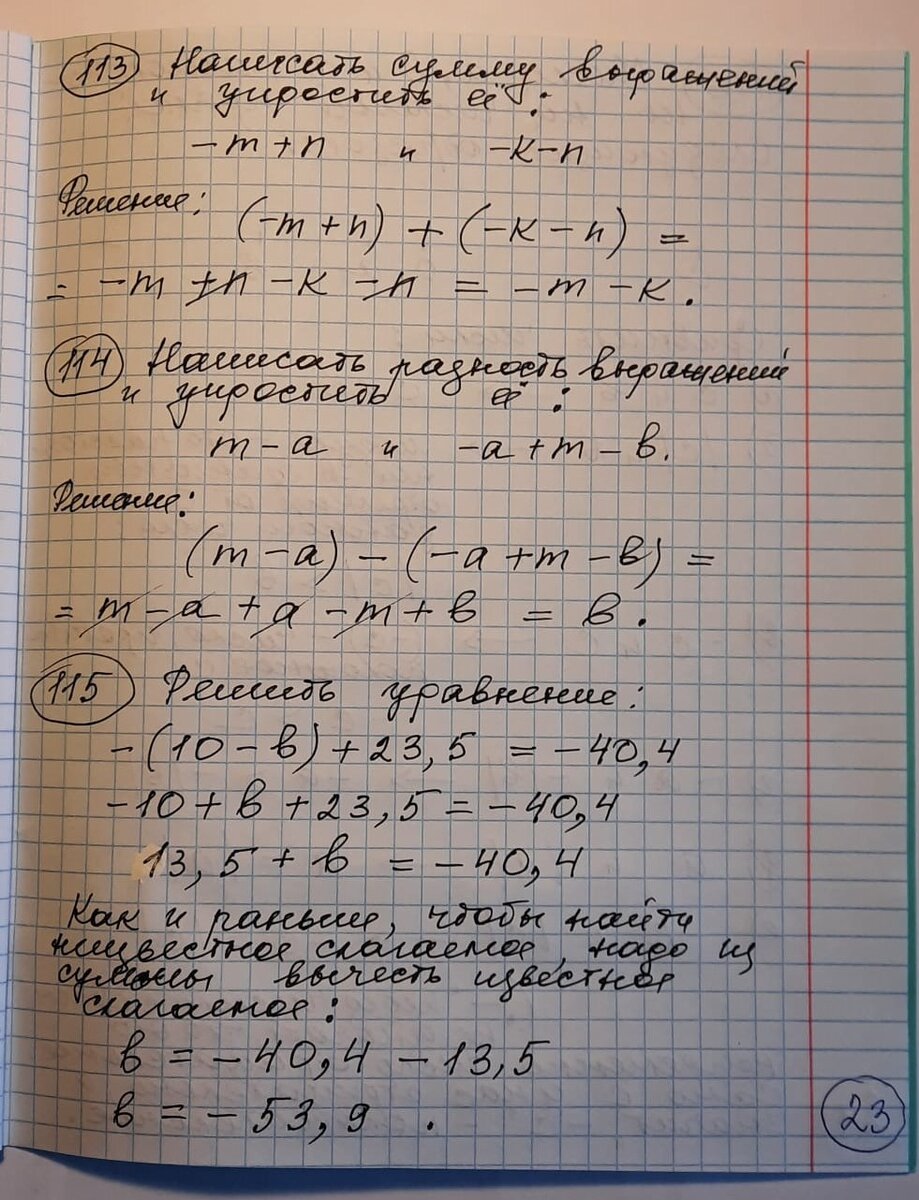 113 Написать сумму выражений
и упростить её:
-m+n и -k-n
Решение:
(-m+n)+(-k-n)=
= -m+n-k-n = -m-k.
114 Написать разность выражений
и упростить её:
m-a и -a+m-в.
Решение:
(m-a)-(-a+m-в)=
= m-a+a-m+в = в.
115 Решить уравнение:
-(10-в)+23,5 = -40,4
-10+в+23,5=-40,4
13,5+в = -40,4
Как и раньше, чтобы найти
неизвестное слагаемое, надо из
суммы вычесть известное
слагаемое:
в = -40,4 - 13,5
в = -53,9.
23